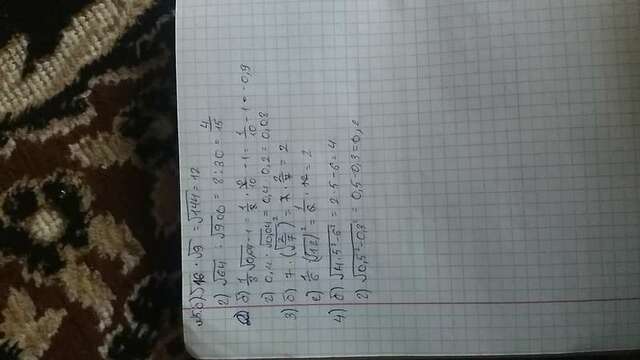 б) √16 · √9 = √144 = 12
г) √64 : √900 = 8 : 30 = 4/15
2) б) 1/3 √0,09 - 1 = 1/3 · 3/10 - 1 = 1/10 - 1 = -0,9
г) 0,4 · √0,04 = 0,4 · 0,2 = 0,08
3) б) 7 · (√2/7)² = 7 · 2/7 = 2
г) 1/6 · (√12)² = 1/6 · 12 = 2
4) б) √4·5²-6² = 2·5-6 = 4
г) √0,5²-0,3² = 0,5-0,3 = 0,2